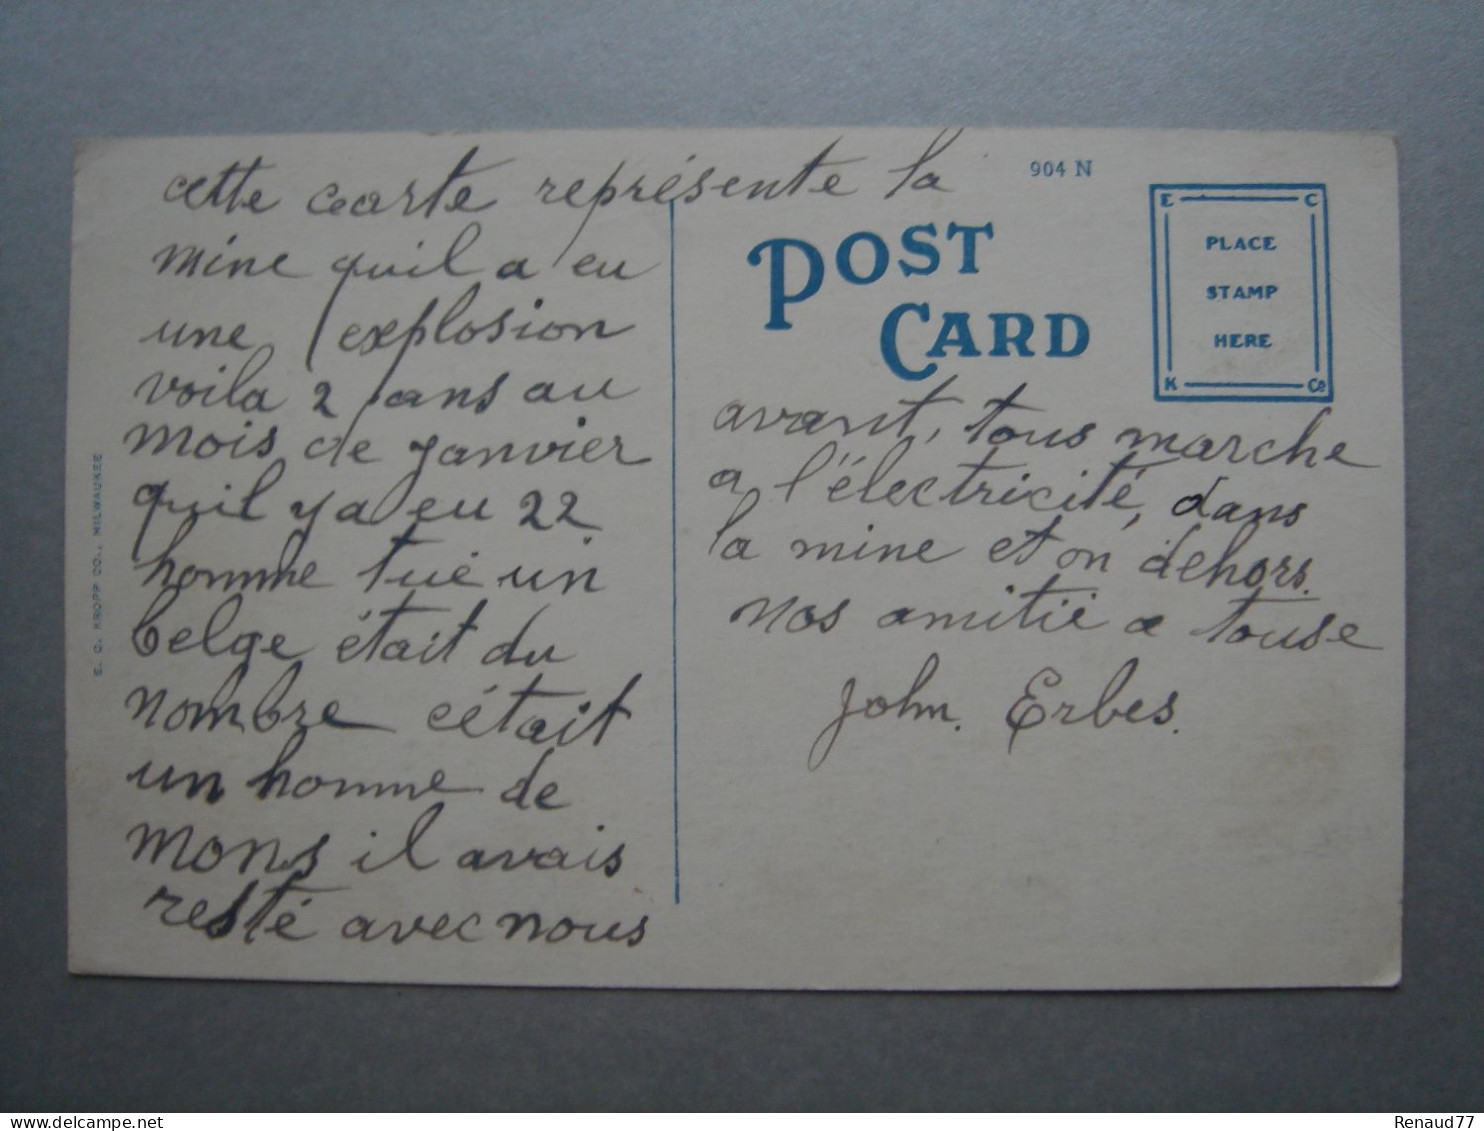 cette carte représente la
mine quil a eu
une explosion
voila 2 ans au
mois de janvier
quil y a eu 22
homme tué un
belge était du
nombre c'était
un homme de
Mons il avais
resté avec nous
904 N
POST
CARD
E C
PLACE
STAMP
HERE
K Co
avant, tous marche
a l'électricité, dans
la mine et on dehors.
nos amitié a touse
John. Erbes.
E. C. KROPP CO., MILWAUKEE
Renaud77